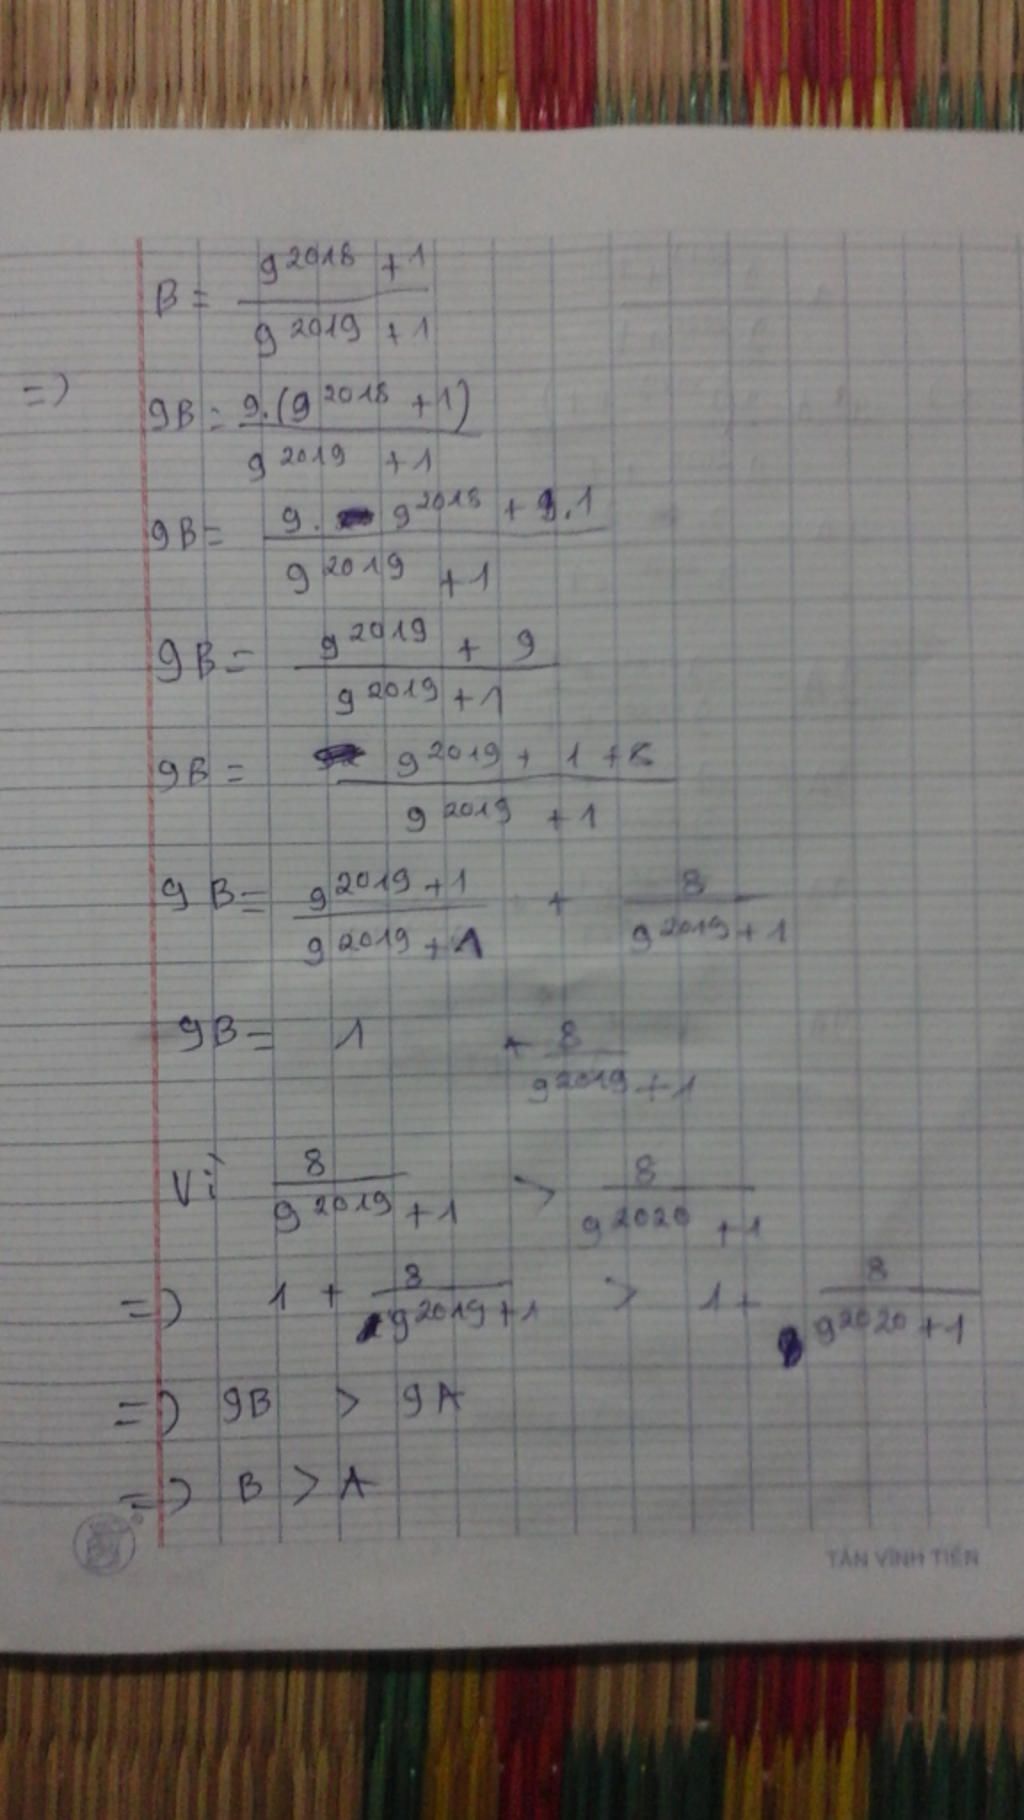 B = (9^2018 + 1) / (9^2019 + 1)
=> 9B = 9.(9^2018 + 1) / (9^2019 + 1)
9B = (9. 9^2018 + 9.1) / (9^2019 + 1)
9B = (9^2019 + 9) / (9^2019 + 1)
9B = (9^2019 + 1 + 8) / (9^2019 + 1)
9B = (9^2019 + 1) / (9^2019 + 1) + 8 / (9^2019 + 1)
9B = 1 + 8 / (9^2019 + 1)
Vì 8 / (9^2019 + 1) > 8 / (9^2020 + 1)
=> 1 + 8 / (9^2019 + 1) > 1 + 8 / (9^2020 + 1)
=> 9B > 9A
=> B > A
TÂN VĨNH TIẾN